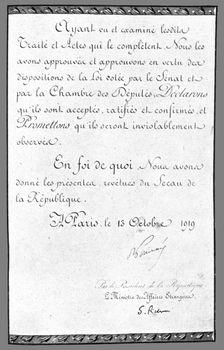 Ayant vu et examiné lesdits
Traité et Actes qui le complètent Nous les
avons approuvés et approuvons en vertu des
dispositions de la Loi votée par le Sénat et
par la Chambre des Députés, Déclarons
qu'ils sont acceptés, ratifiés et confirmés, et
Promettons qu'ils seront inviolablement
observés.
En foi de quoi Nous avons
donné les présentes, revêtues du Sceau de
la République.
À Paris, le 13 Octobre 1919
Par le Président de la République
Le Ministre des Affaires Etrangères